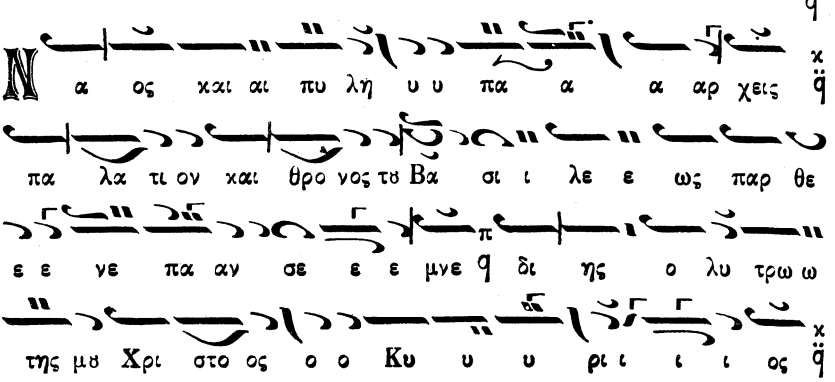 Ν α ος και αι πυ λη υ υ πα α α αρ χεις κ q̈
πα λα τι ον και θρο νος τȣ Βα σι ι λε ε ως παρ θε
ε ε νε πα αν σε ε ε μνε π q δι ης ο λυ τρω ω
της μȣ Χρι στο ος ο ο Κυ υ υ ρι ι ι ι ος κ q̈